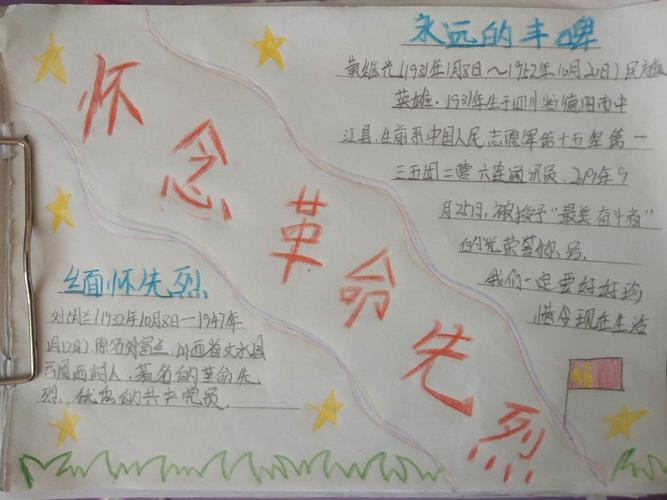 怀念革命先烈
永远的丰碑
黄继光(1931年1月8日～1952年10月20日)民族
英雄.1931年生于四川省德阳市中
江县,生前系中国人民志愿军第十五军第一
三五团二营六连通讯员.2019年9
月25日,被授予"最美奋斗者"
的光荣称号.
我们一定要好好珍
惜今现在生活
缅怀先烈
刘胡兰(1932年10月8日—1947年
1月12日)原名刘富兰,山西省文水县
云周西村人.著名的革命先
烈,优秀的共产党员.